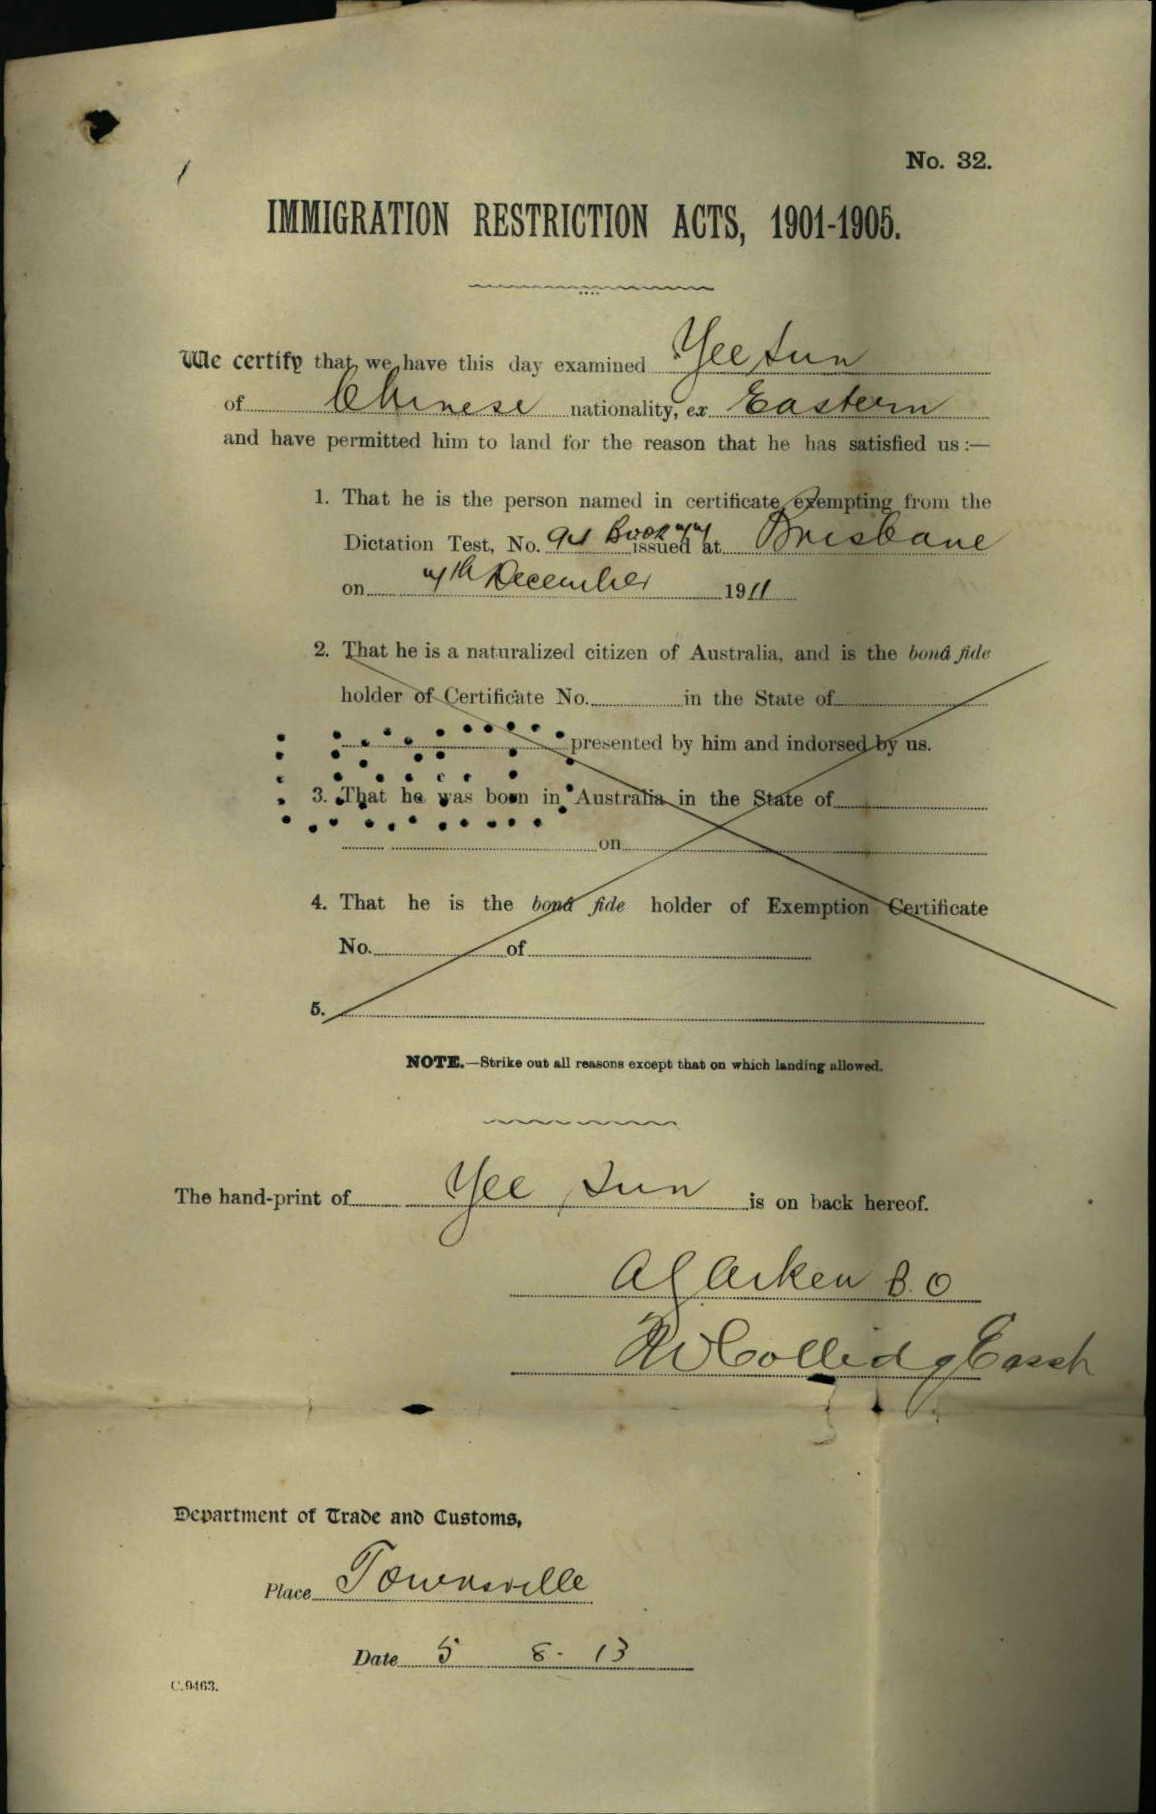 No. 32.
IMMIGRATION RESTRICTION ACTS, 1901-1905.
We certify that we have this day examined Yee Sun
of Chinese nationality, ex Eastern
and have permitted him to land for the reason that he has satisfied us :—
1. That he is the person named in certificate exempting from the
Dictation Test, No. Book issued at Brisbane
on December 1911
2. That he is a naturalized citizen of Australia, and is the bonâ fide
holder of Certificate No. in the State of
presented by him and indorsed by us.
3. That he was born in Australia in the State of
on
4. That he is the bonâ fide holder of Exemption Certificate
No. of
5.
NOTE.—Strike out all reasons except that on which landing allowed.
The hand-print of Yee Sun is on back hereof.
Department of Trade and Customs,
Place Townsville
Date 5 8 - 13
C.9463.